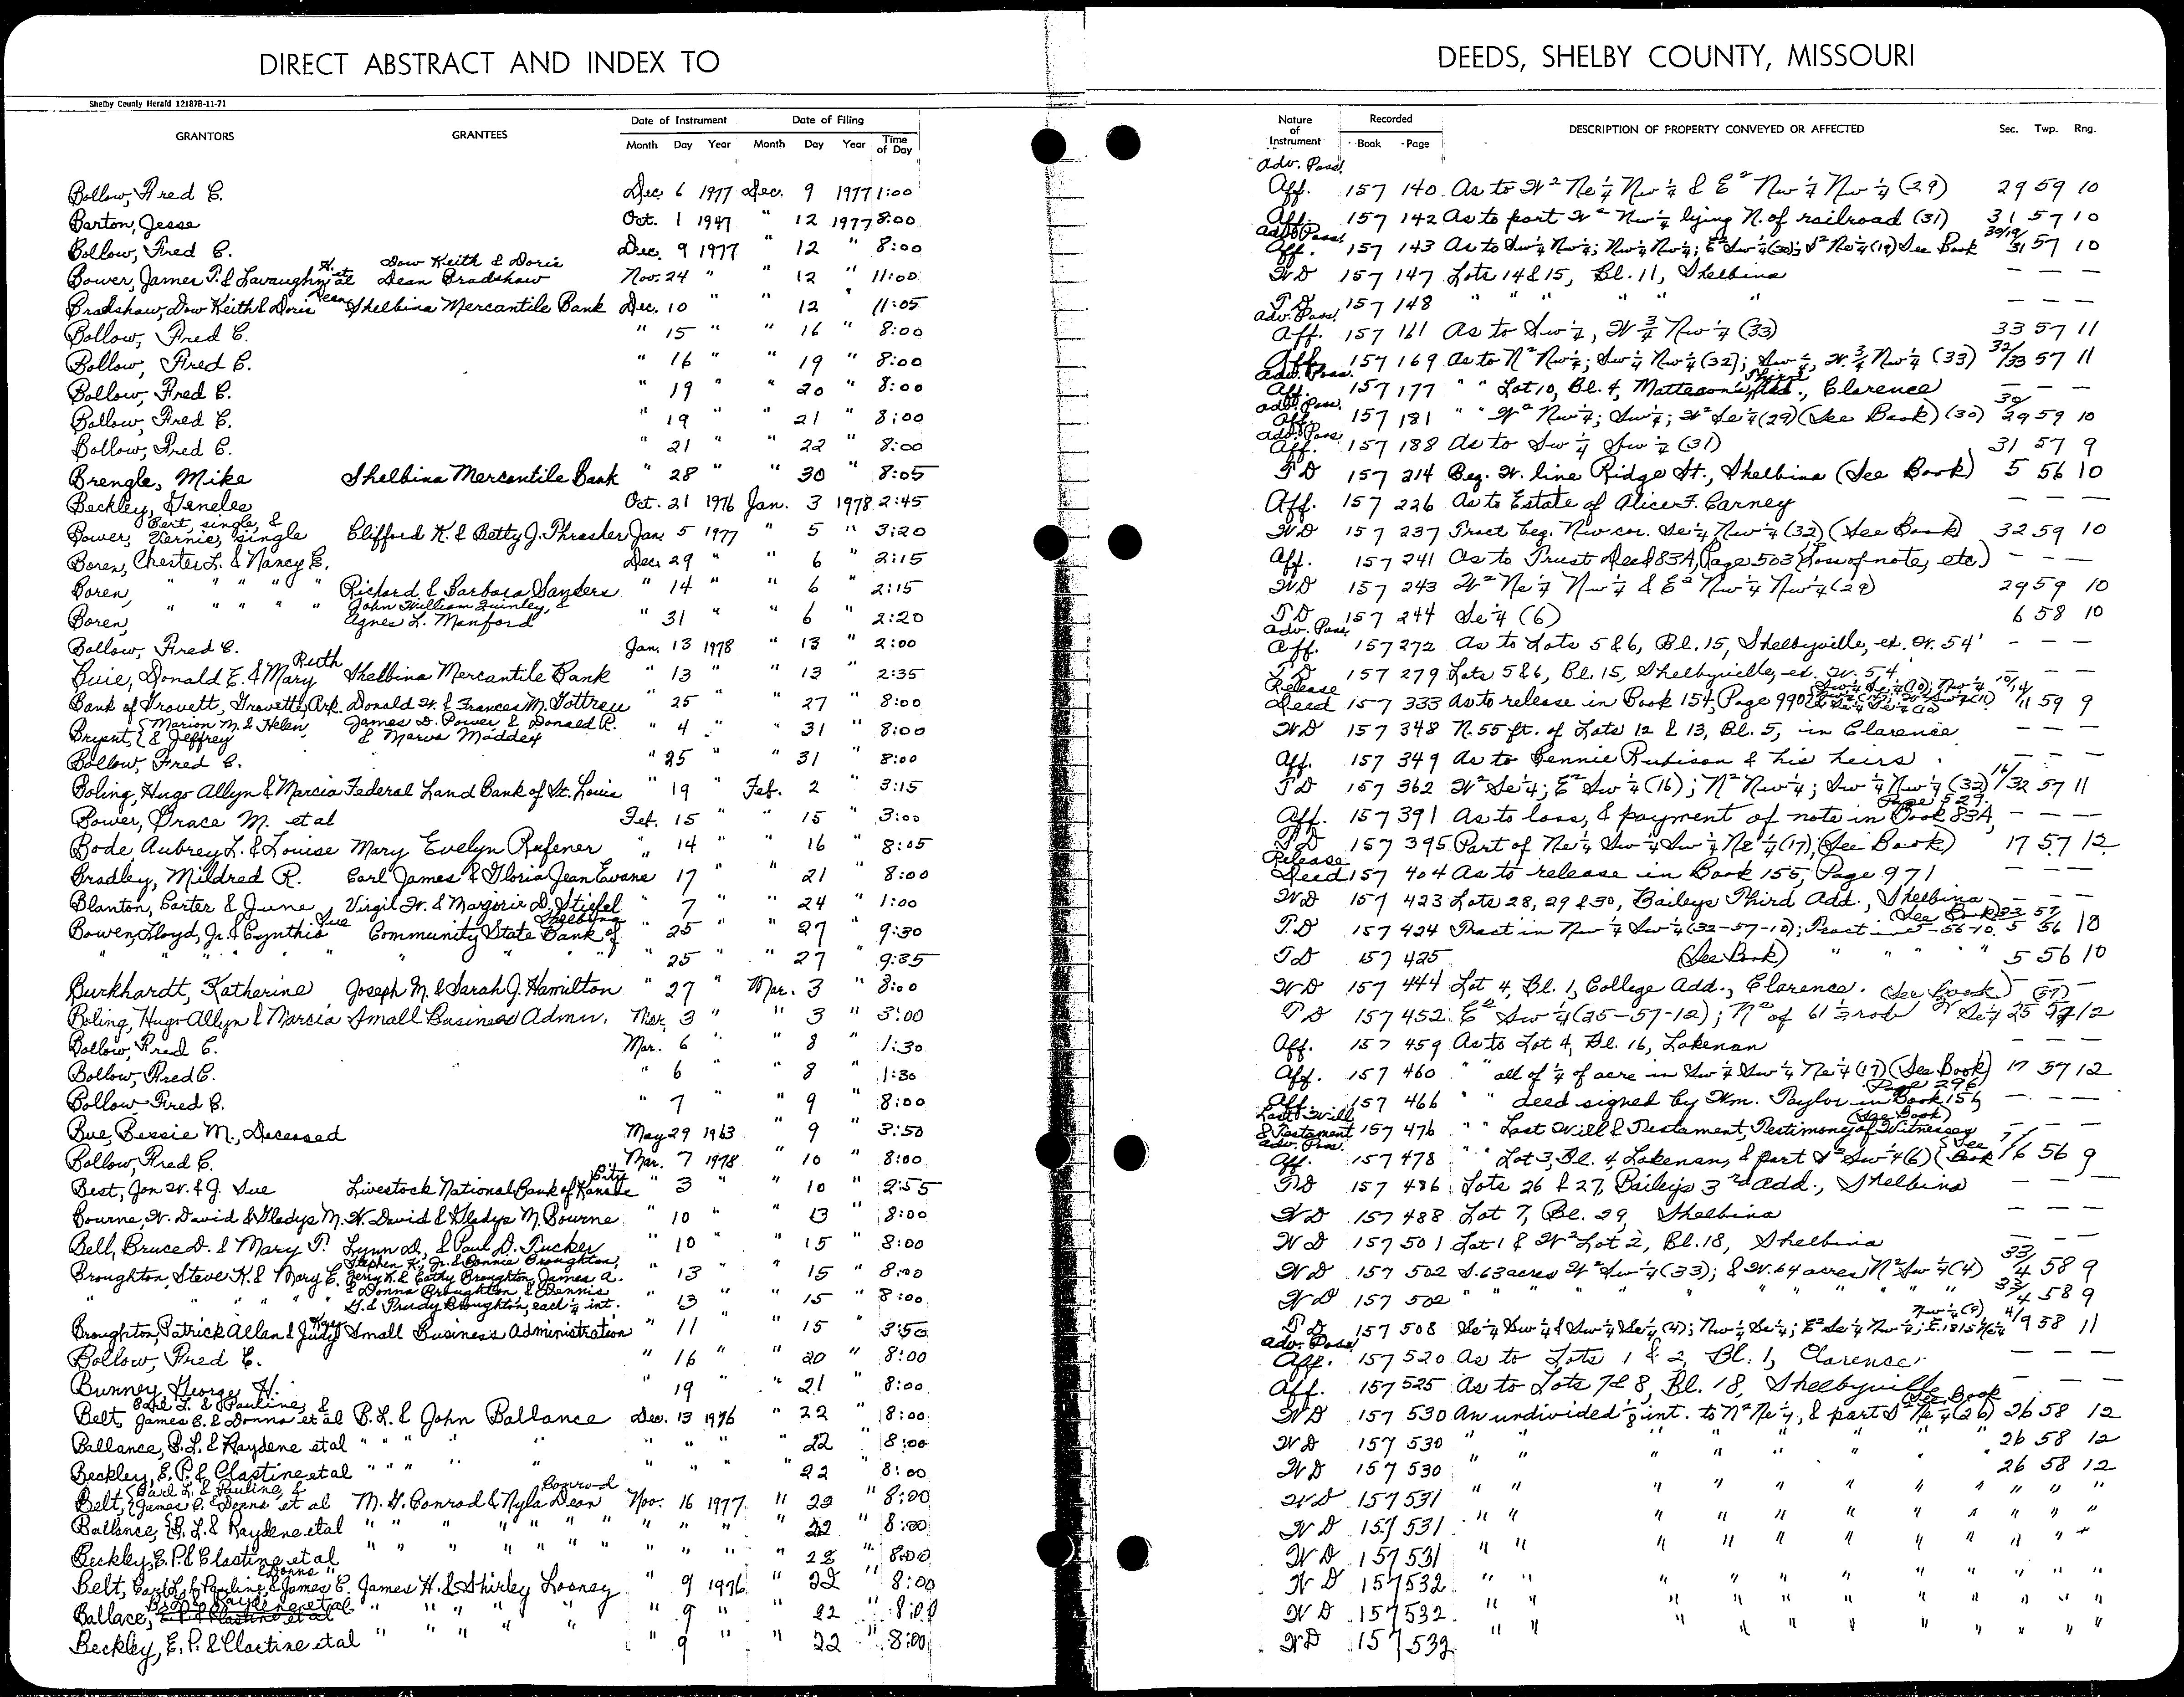 DIRECT ABSTRACT AND INDEX TO DEEDS, SHELBY COUNTY, MISSOURI
Shelby County Herald 12187B-11-71
GRANTORS GRANTEES Date of Instrument Month Day Year Date of Filing Month Day Year Time of Day Nature of Instrument Recorded Book Page DESCRIPTION OF PROPERTY CONVEYED OR AFFECTED Sec. Twp. Rng.
Bollow, Fred C. Dec. 6 1977 Dec. 9 1977 1:00 Adv. Poss. Aff. 157 140 As to W² Ne¼ Nw¼ & E² Nw¼ Nw¼ (29) 29 59 10
Barton, Jesse Oct. 1 1947 " 12 1977 8:00 Aff. 157 142 As to part W² Nw¼ lying N. of railroad (31) 31 57 10
Bollow, Fred C. Dec. 9 1977 " 12 " 8:00 Adv. Poss. Aff. 157 143 As to Sw¼ Nw¼; Nw¼ Nw¼; E² Sw¼ (30); S² Ne¼ (19) See Book 30/19/31 57 10
Bower, James T. & Lavaughn H. et al Dow Keith & Doris Dean Bradshaw Nov. 24 " " 12 " 11:00 WD 157 147 Lots 14 & 15, Bl. 11, Shelbina — — —
Bradshaw, Dow Keith & Doris Dean Shelbina Mercantile Bank Dec. 10 " " 12 " 11:05 TD 157 148 " " " " " " — — —
Bollow, Fred C. " 15 " " 16 " 8:00 Adv. Poss. Aff. 157 161 As to Sw¼, W¾ Nw¼ (33) 33 57 11
Bollow, Fred C. " 16 " " 19 " 8:00 Aff. 157 169 As to N² Nw¼; Sw¼ Nw¼ (32); Sw¼, W.¾ Nw¼ (33) 32/33 57 11
Bollow, Fred C. " 19 " " 20 " 8:00 Adv. Poss. Aff. 157 177 " " Lot 10, Bl. 4, Matteson's Third Add., Clarence — — —
Bollow, Fred C. " 19 " " 21 " 8:00 Adv. Poss. Aff. 157 181 " " W² Nw¼; Sw¼; W² Se¼ (29) (See Book) (30) 30/29 59 10
Bollow, Fred C. " 21 " " 22 " 8:00 Adv. Poss. Aff. 157 188 As to Sw¼ Sw¼ (31) 31 57 9
Brengle, Mike Shelbina Mercantile Bank " 28 " " 30 " 8:05 TD 157 214 Beg. W. line Ridge St., Shelbina (See Book) 5 56 10
Beckley, Genelee Oct. 21 1976 Jan. 3 1978 2:45 Aff. 157 226 As to Estate of Alice F. Carney — — —
Bower, Bert, single, & Vernie, single Clifford K. & Betty J. Thrasher Jan. 5 1977 " 5 " 3:20 WD 157 237 Tract beg. Nw cor. Se¼ Nw¼ (32) (See Book) 32 59 10
Boren, Chester L. & Nancy E. Dec. 29 " " 6 " 2:15 Aff. 157 241 As to Trust Deed 83A, Page 503 (Loss of note, etc.) — — —
Boren, " " " " Richard & Barbara Sanders " 14 " " 6 " 2:15 WD 157 243 W² Ne¼ Nw¼ & E² Nw¼ Nw¼ (29) 29 59 10
Boren, " " " " " John William Quinley, & Agnes L. Manford " 31 " 6 " 2:20 TD 157 244 Se¼ (6) 6 58 10
Bollow, Fred C. Jan. 13 1978 " 13 " 2:00 Adv. Poss. Aff. 157 272 As to Lots 5 & 6, Bl. 15, Shelbyville, ex. W. 54' — — —
Buie, Donald E. & Mary Ruth Shelbina Mercantile Bank " 13 " " 13 " 2:35 TD 157 279 Lots 5 & 6, Bl. 15, Shelbyville, ex. W. 54' — — —
Bank of Grovett, Grovette, Ark. Donald W. & Frances M. Gottreu " 25 " " 27 " 8:00 Release Deed 157 333 As to release in Book 154, Page 990 10/14/11 59 9
Bryant, {Marion M. & Helen, & Jeffrey James D. Power & Donald R. & Marva Maddex " 4 " " 31 " 8:00 WD 157 348 N. 55 ft. of Lots 12 & 13, Bl. 5, in Clarence — — —
Bollow, Fred C. " 25 " " 31 " 8:00 Aff. 157 349 As to Bennie Rubison & his heirs. — — —
Boling, Hugo Allyn & Marcia Federal Land Bank of St. Louis " 19 " Feb. 2 " 3:15 TD 157 362 W² Se¼; E² Sw¼ (16); N² Nw¼; Sw¼ Nw¼ (32) 16/32 57 11
Bower, Grace M. et al Feb. 15 " " 15 " 3:00 Aff. 157 391 As to loss, & payment of note in Book 83A, Page 529. — — —
Bode, Aubrey L. & Louise Mary Evelyn Rufener " 14 " " 16 " 8:05 TD 157 395 Part of Ne¼ Sw¼ Sw¼ Ne¼ (17), (See Book) 17 57 12
Bradley, Mildred R. Earl James & Gloria Jean Evans 17 " " 21 " 8:00 Release Deed 157 404 As to release in Book 155, Page 971
Blanton, Carter & June Virgil W. & Marjorie D. Stiefel " 7 " " 24 " 1:00 WD 157 423 Lots 28, 29 & 30, Baileys Third Add., Shelbina — —
Bowen, Lloyd, Jr. & Cynthia Sue Community State Bank of Shelbina " 25 " " 27 " 9:30 TD 157 424 Tract in Nw¼ Sw¼ (32-57-10); Tract in 5-56-10. (See Book) 32 57 5 56 10
" " " " " " " " " " 25 " " 27 " 9:35 TD 157 425 (See Book) " " " " 5 56 10
Burkhardt, Katherine Joseph M. & Sarah J. Hamilton " 27 " Mar. 3 " 8:00 WD 157 444 Lot 4, Bl. 1, College Add., Clarence. — — —
Boling, Hugo Allyn & Marcia Small Business Admn. Mar. 3 " " 3 " 3:00 TD 157 452 E² Sw¼ (25-57-12); N² of 61½ rods W² Se¼ (See Book) (57) 25 57 12
Bollow, Fred C. Mar. 6 " " 8 " 1:30 Aff. 157 459 As to Lot 4, Bl. 16, Lakenan — — —
Bollow, Fred C. " 6 " 8 " 1:30 Aff. 157 460 " " all of ¼ of acre in Sw¼ Sw¼ Ne¼ (17) (See Book) 17 57 12
Bollow, Fred C. " 7 " " 9 " 8:00 Aff. 157 466 " " deed signed by Wm. Taylor in Book 156, Page 296 — — —
Bue, Bessie M., Deceased May 29 1963 " 9 " 3:50 Last Will & Testament 157 476 " " Last Will & Testament, Testimony of Witnesses (See Book) — — —
Bollow, Fred C. Mar. 7 1978 " 10 " 8:00 Adv. Poss. Aff. 157 478 " " Lot 3, Bl. 4, Lakenan, & part S² Sw¼ (6) (See Book 7/6 56 9
Best, Jon W. & J. Sue Livestock National Bank of Kansas City " 3 " " 10 " 2:55 TD 157 486 Lots 26 & 27, Baileys 3rd Add., Shelbina — — —
Bourne, W. David & Gladys M. W. David & Gladys M. Bourne " 10 " " 13 " 8:00 WD 157 488 Lot 7, Bl. 29, Shelbina — — —
Bell, Bruce D. & Mary T. Lynn D., & Paul D. Tucker " 10 " " 15 " 8:00 WD 157 501 Lot 1 & W² Lot 2, Bl. 18, Shelbina — — —
Broughton, Steve K. & Mary E. Stephen K., Jr. & Connie Broughton, Jerry K. & Cathy Broughton, James A. " 13 " " 15 " 8:00 WD 157 502 S. 63 acres W² Sw¼ (33); & W. 64 acres N² Sw¼ (4) 33/4 58 9
" " " " " & Donna Broughton, & Dennis G. & Trudy Broughton, each ¼ int. " 13 " " 15 " 8:00 WD 157 502 " " " " " " " " 33/4 58 9
Broughton, Patrick Allan & Judy Kay Small Business Administration " 11 " " 15 " 3:50 TD 157 508 Se¼ Sw¼ & Sw¼ Se¼ (4); Nw¼ Se¼; E² Se¼ Nw¼; Nw¼ (9) 4/9 58 11
Bollow, Fred C. " 16 " " 20 " 8:00 Adv. Poss. Aff. 157 520 As to Lots 1 & 2, Bl. 1, Clarence. — — —
Bunney, George H. " 19 " " 21 " 8:00 Aff. 157 525 As to Lots 7 & 8, Bl. 18, Shelbyville — — —
Belt, Earl L. & Pauline, & James C. & Donna et al B. L. & John Ballance Dec. 13 1976 " 22 " 8:00 WD 157 530 An undivided ⅛ int. to N² Ne¼, & part S² Ne¼ (26) (See Book 26 58 12
Ballance, B. L. & Raydene et al " " " " " " " " " 22 " 8:00 WD 157 530 " " " " " " " 26 58 12
Beckley, E. P. & Clastine et al " " " " " " " " " 22 " 8:00 WD 157 530 " " " " " " " 26 58 12
Belt, {Earl L. & Pauline, & James C. & Donna et al M. G. Conrad & Nyla Dean Conrad Nov. 16 1977 " 22 " 8:00 WD 157 531 " " " " " " " " " "
Ballance, B. L. & Raydene et al " " " " " " " " " " 22 " 8:00 WD 157 531 " " " " " " " " " "
Beckley, E. P. & Clastine et al " " " " " " " " " " 22 " 8:00 WD 157 531 " " " " " " " " " "
Belt, Earl L. & Pauline, & James C. & Donna " James H. & Shirley Looney " 9 1976 " 22 " 8:00 WD 157 532 " " " " " " " " " "
Ballace, B. L. & Raydene et al " " " " " " 9 " " 22 " 8:00 WD 157 532 " " " " " " " " " "
Beckley, E. P. & Clastine et al " " " " " " 9 " " 22 " 8:00 WD 157 532 " " " " " " " " " "